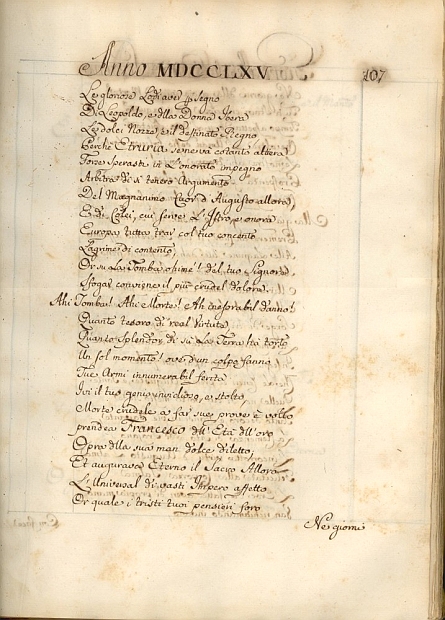 Anno MDCCLXV
107
Le gloriose Lodi aver p segno
Di Leopoldo, e dlla Donna Ibera
Le dolci Nozze, e il destinato Regno
Perchè Etruria seneva cotanto altera
Forse sperasti in L'onorato impegno
Arbitra di sì tenero Argumento
Del Magnanimo Cuor d'Augusto allora,
E di Colei, cui serve L'Istro, e onora
Europa tutta trar col tuo concento
Lagrime di contento
Or su La Tomba ohimè! del tuo Signore
Sfogar convienne il più crudel dolore.
Ahi Tomba! Ahi Morte! Ahi inesorabil danno!
Quanto tesoro di real Virtute
Quanto Splendor di su La Terra ha tolto
Un sol momento! ove d'un colpo fanno
Tue Armi innumerabil ferita
Ivi il tuo genio invidioso, e stolto
Morte crudele a far sue prove è volto
prendea Francesco dll' Età dll'oro
Opra dlla sua man dolce diletto;
Et augurava Eterno il Sacro Alloro
L'Universal di vasti Impero affetto
Or quale i tristi tuoi pensieri foro
Ne giorni